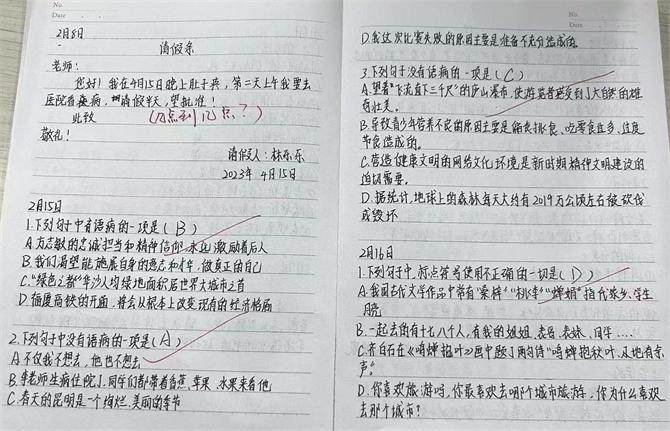 No.
Date
2月8日
请假条
老师:
您好! 我在4月15日晚上肚子疼, 第二天上午我要去
医院看病, 请假半天, 望批准!
此致 (几点到几点?)
敬礼!
请假人: 林乐乐
2023年 4月15日
2月15日
1.下列句子中有语病的一项是(B)
A.方志敏的忠诚担当和精神信仰永远激励着后人
B.我们渴望能施展自身的意志和才华, 做真正的自己
C."绿色之都"长沙人均绿地面积居世界大城市之首
D.福厦高铁的开通, 将会从根本上改变现有的经济格局
2.下列句子中没有语病的一项是(A)
A.不仅我不想去, 他也不想去
B.李老师生病住院了, 同学们都带着香蕉、苹果、水果来看他
C.春天的昆明是一个绚烂、美丽的季节
No.
Date
D.我这次比赛失败的原因主要是准备不充分造成的。
3.下列句子没有语病的一项是(C)
A.望着"飞流直下三千尺"的庐山瀑布, 使游览者感受到了大自然的雄
奇壮美。
B.导致青少年营养不良的原因主要是偏食挑食、吃零食过多、过度
节食造成的。
C.营造健康文明的网络文化环境是新时期精神文明建设的
迫切需要。
D.据统计, 地球上的森林每天大约有2019万公顷左右被砍伐
或毁坏
2月16日
1.下列句子中, 标点符号使用不正确的一项是(D)
A.我国古代文学作品中常有"桑梓""桃李""婵娟"指代故乡、学生
月亮
B.一起去的有十七八个人, 有我的姐姐、表哥、表妹、同学....
C.齐白石在《鸣蝉抱叶》画中题了两句诗"鸣蝉抱秋叶, 及地有余
声。"
D.你喜欢旅游吗, 你最喜欢去哪个城市旅游, 你为什么喜欢
去那个城市?